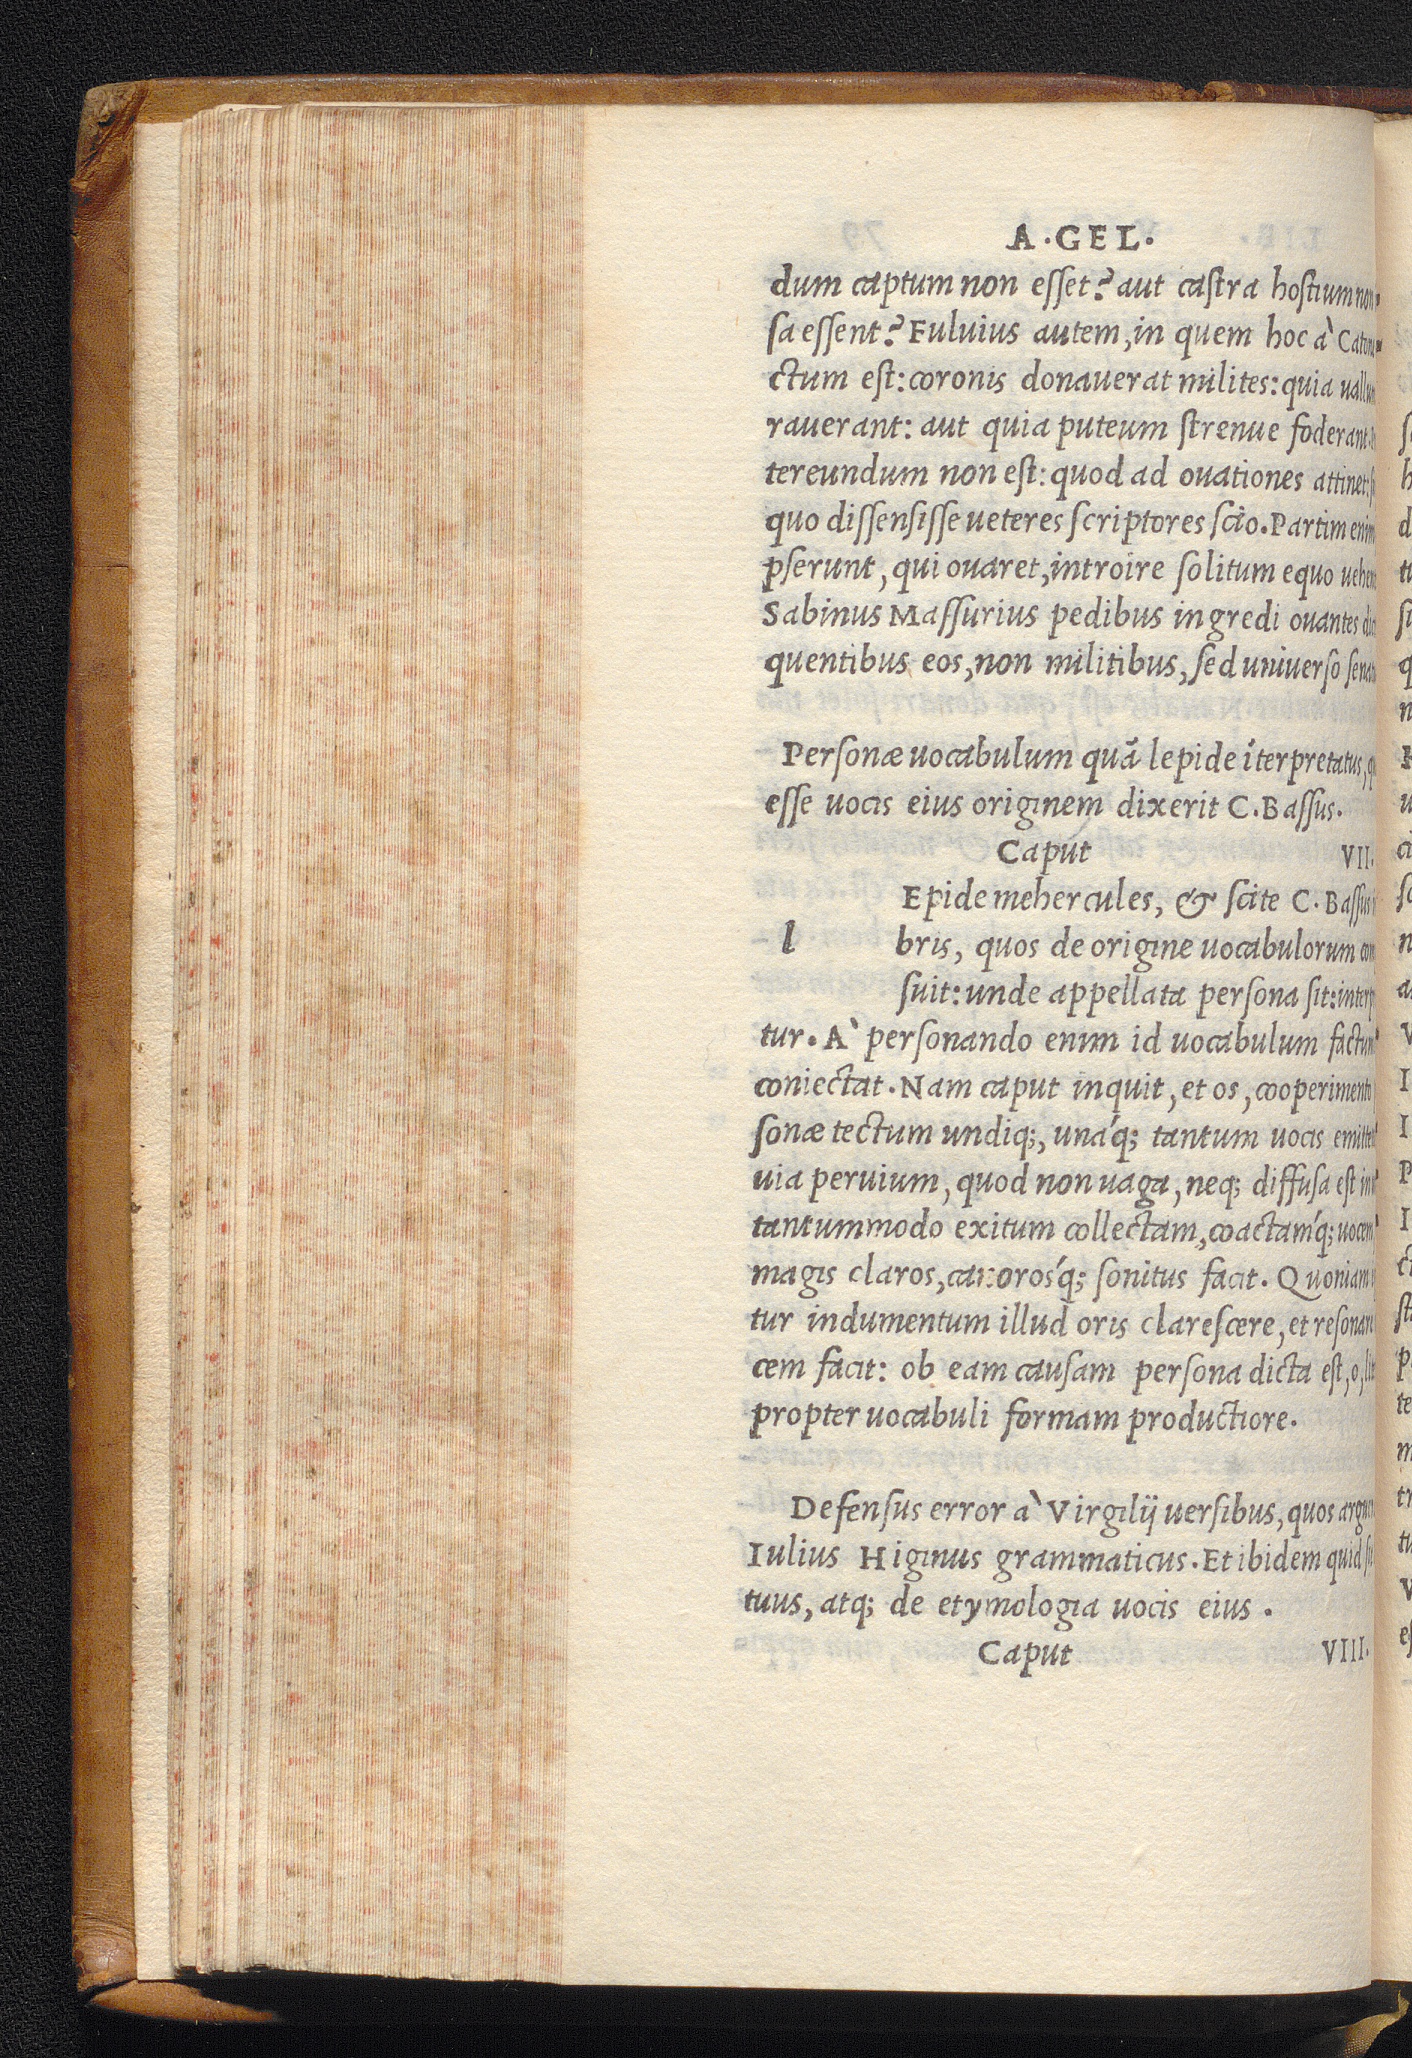 A·GEL·
dum captum non esset? aut castra hostium non
sa essent? Fuluius autem, in quem hoc à Caton
ctum est: coronis donauerat milites: quia uallum
rauerant: aut quia puteum strenue foderant.
tereundum non est: quod ad ouationes attinet:
quo dissensisse ueteres scriptores scio. Partim enim
pserunt, qui ouaret, introire solitum equo uehen
Sabinus Massurius pedibus ingredi ouantes dic
quentibus eos, non militibus, sed uniuerso senatu
Personæ uocabulum quã lepide ĩterpretatus,
esse uocis eius originem dixerit C. Bassus.
Caput VII.
Epide mehercules, & scite C. Bassus
l bris, quos de origine uocabulorum com
suit: unde appellata persona sit: interp
tur. A` personando enim id uocabulum factum
coniectat. Nam caput inquit, et os, cooperimento
sonæ tectum undiq;, unáq; tantum uocis emitten
uia peruium, quod non uaga, neq; diffusa est in
tantummodo exitum collectam, coactamq́; uocem
magis claros, canorosq́; sonitus facit. Quoniam
tur indumentum illud oris clarescere, et resonare
cem facit: ob eam causam persona dicta est, o, lit
propter uocabuli formam productiore.
Defensus error à Virgilij uersibus, quos argue
Iulius Higinus grammaticus. Et ibidem quid
tuus, atq; de etymologia uocis eius.
Caput VIII.